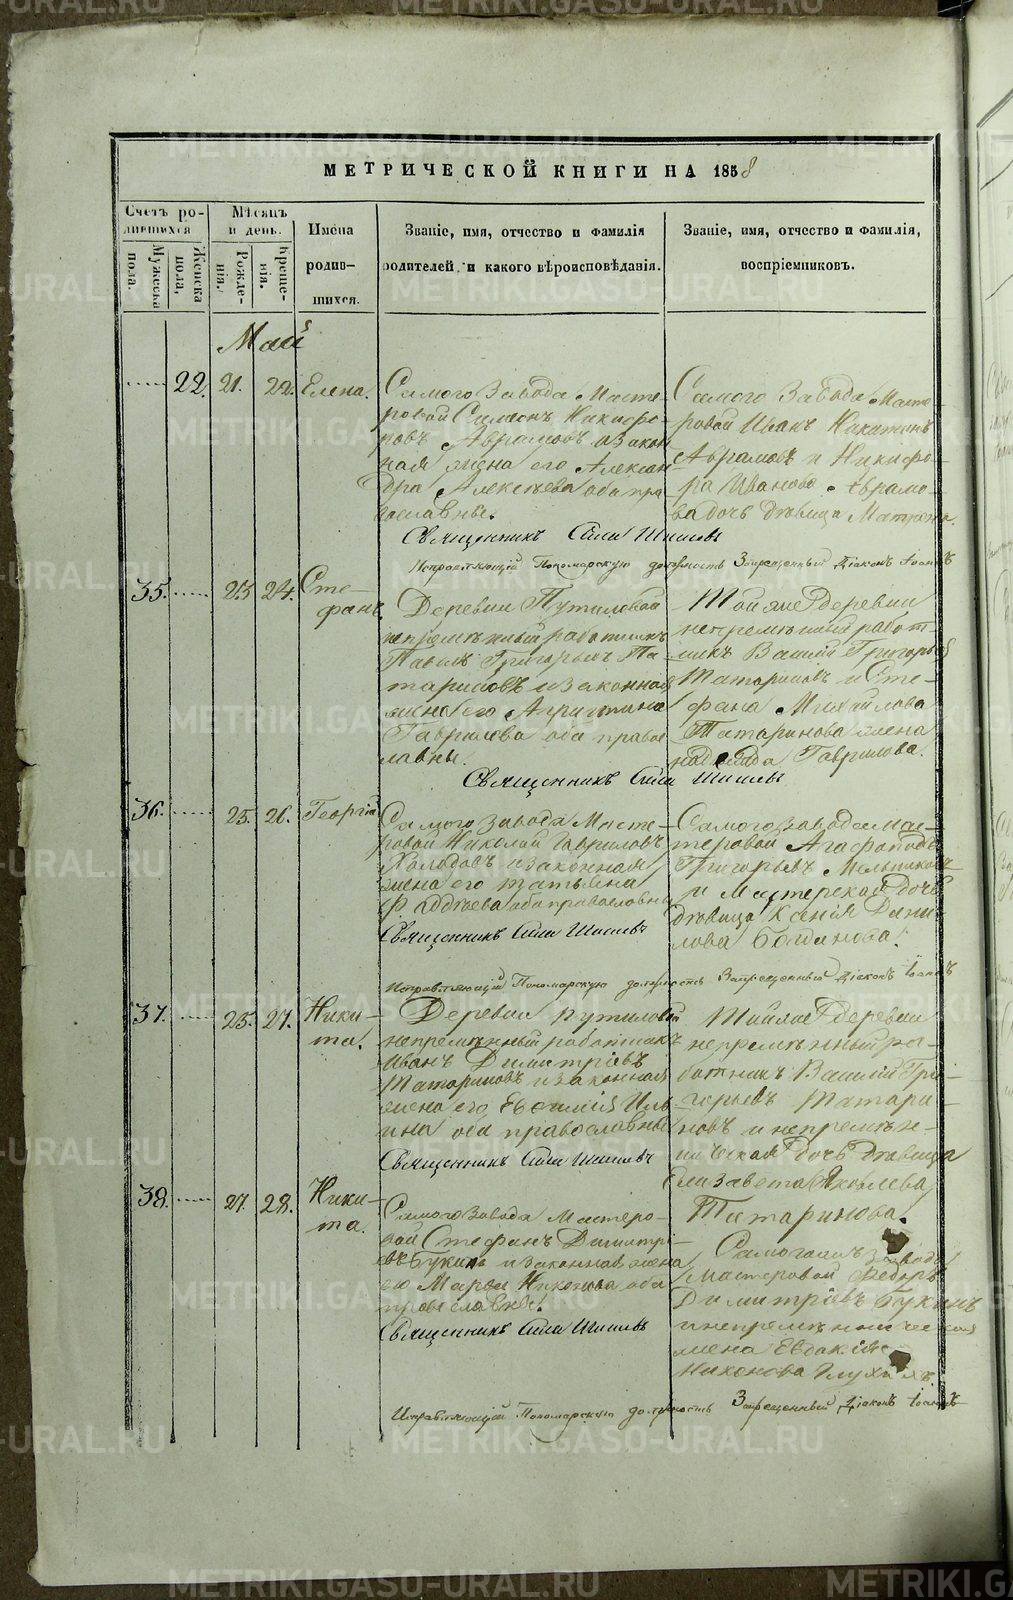 МЕТРИЧЕСКОЙ КНИГИ НА 1858
Счетъ ро-
дившихся
Мужеска пола.
Женска пола,
Мѣсяцъ
и день.
Рожде-
нія.
Креще-
нія.
Имена
родив-
шихся.
Званіе, имя, отчество и фамилія
родителей, и какого вѣроисповѣданія.
Званіе, имя, отчество и фамилія,
воспріемниковъ.
Май
22. 21. 22. Елена.
Самого Завода Масте-
ровой Симеонъ Никифо-
ровъ Аврамовъ и закон
ная жена его Алексан
дра Алексѣева оба пра
вославны.
Самого Завода Масте-
ровой Иванъ Никитинъ
Аврамовъ и Никифо-
ра Иванова Аврамо-
ва дочь дѣвица Матрона.
Священникъ Сила Шишевъ
Исправляющій Пономарскую должность Запрещенный Діаконъ Іоаннъ
35. 23 24. Сте-
фанъ
Деревни Путиловой
непремѣнный работникъ
Павелъ Григорьевъ Та
тариновъ и законная
жена его Агриппина
Гаврилова оба право
славны.
Той же деревни
непремѣнный работ-
никъ Василій Григорьевъ
Татариновъ и Сте-
фана Михайлова
Татаринова жена
Надежда Гаврилова.
Священникъ Сила Шишевъ
36. 25. 26. Георгій
Самого завода Масте-
ровой Николай Гавриловъ
Холодовъ и законная
жена его Татьяна
Фаддѣева оба православны
Священникъ Сила Шишевъ
Самого завода мас-
теровой Агафоподъ
Григорьевъ Мельниковъ
и Мастерская дочь
дѣвица Ксенія Дани-
лова Богданова.
Исправляющій Пономарскую должность Запрещенный Діаконъ Іоаннъ
37. 25. 27. Ники-
та.
Деревни Путиловой
непремѣнный работникъ
Иванъ Димитріевъ
Татариновъ и законная
жена его Евфимія Иль
ина оба православны
Священникъ Сила Шишевъ
Той же деревни
непремѣнный ра-
ботникъ Василій Гри-
горьевъ Татари-
новъ и непремѣн-
ническая дочь дѣвица
Елизавета Яковлева
Татаринова.
38. 27. 28. Ники-
та.
Самого Завода Мастеро-
вой Стефанъ Димитрі-
евъ Букинъ и законная жена
его Марѳа Никонова оба
православны.
Священникъ Сила Шишевъ
Самого завода
Мастеровой Федоръ
Димитріевъ Букинъ
и непремѣнническая
жена Евдокія
Никонова Глухихъ.
Исправляющій Пономарскую должность Запрещенный Діаконъ Іоаннъ
METRIKI.GASO-URAL.RU